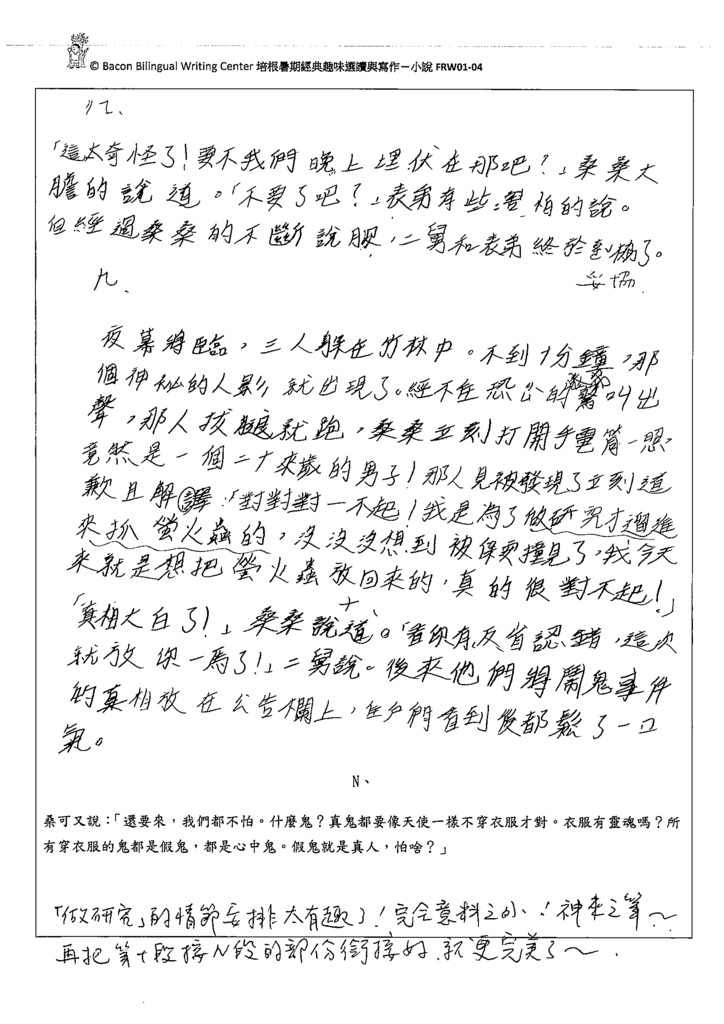 © Bacon Bilingual Writing Center 培根暑期經典趣味選讀與寫作－小說 FRW01-04
「這太奇怪了！要不我們晚上埋伏在那吧？」桑桑大
膽的說道。「不要了吧？」表弟有些害怕的說。
但經過桑桑的不斷說服，二舅和表弟終於了。
妥協
九、
夜幕將臨，三人躲在竹林中。不到十分鐘，那
個神秘的人影就出現了。經不住恐公的叫出
聲，那人拔腿就跑，桑桑立刻打開手電筒一照，
竟然是一個二十來歲的男子！那人見被發現了立刻道
歉且解譯：「對對對－不起！我是為了做研究才溜進
來抓螢火蟲的，沒沒沒想到被你們撞見了，我今天
來就是想把螢火蟲放回來的，真的很對不起！」
十、
「真相大白了！」桑桑說道。「看你有反省認錯，這次
就放你一馬了！」二舅說。後來他們將鬧鬼事件
的真相放在公告欄上，住戶們看到後都鬆了一口
氣。
N、
桑可又說：「還要來，我們都不怕。什麼鬼？真鬼都要像天使一樣不穿衣服才對。衣服有靈魂嗎？所
有穿衣服的鬼都是假鬼，都是心中鬼。假鬼就是真人，怕啥？」
「做研究」的情節安排太有趣了！完全意料之外！神來之筆～
再把第十段接N段的部份銜接好，就更完美了～.